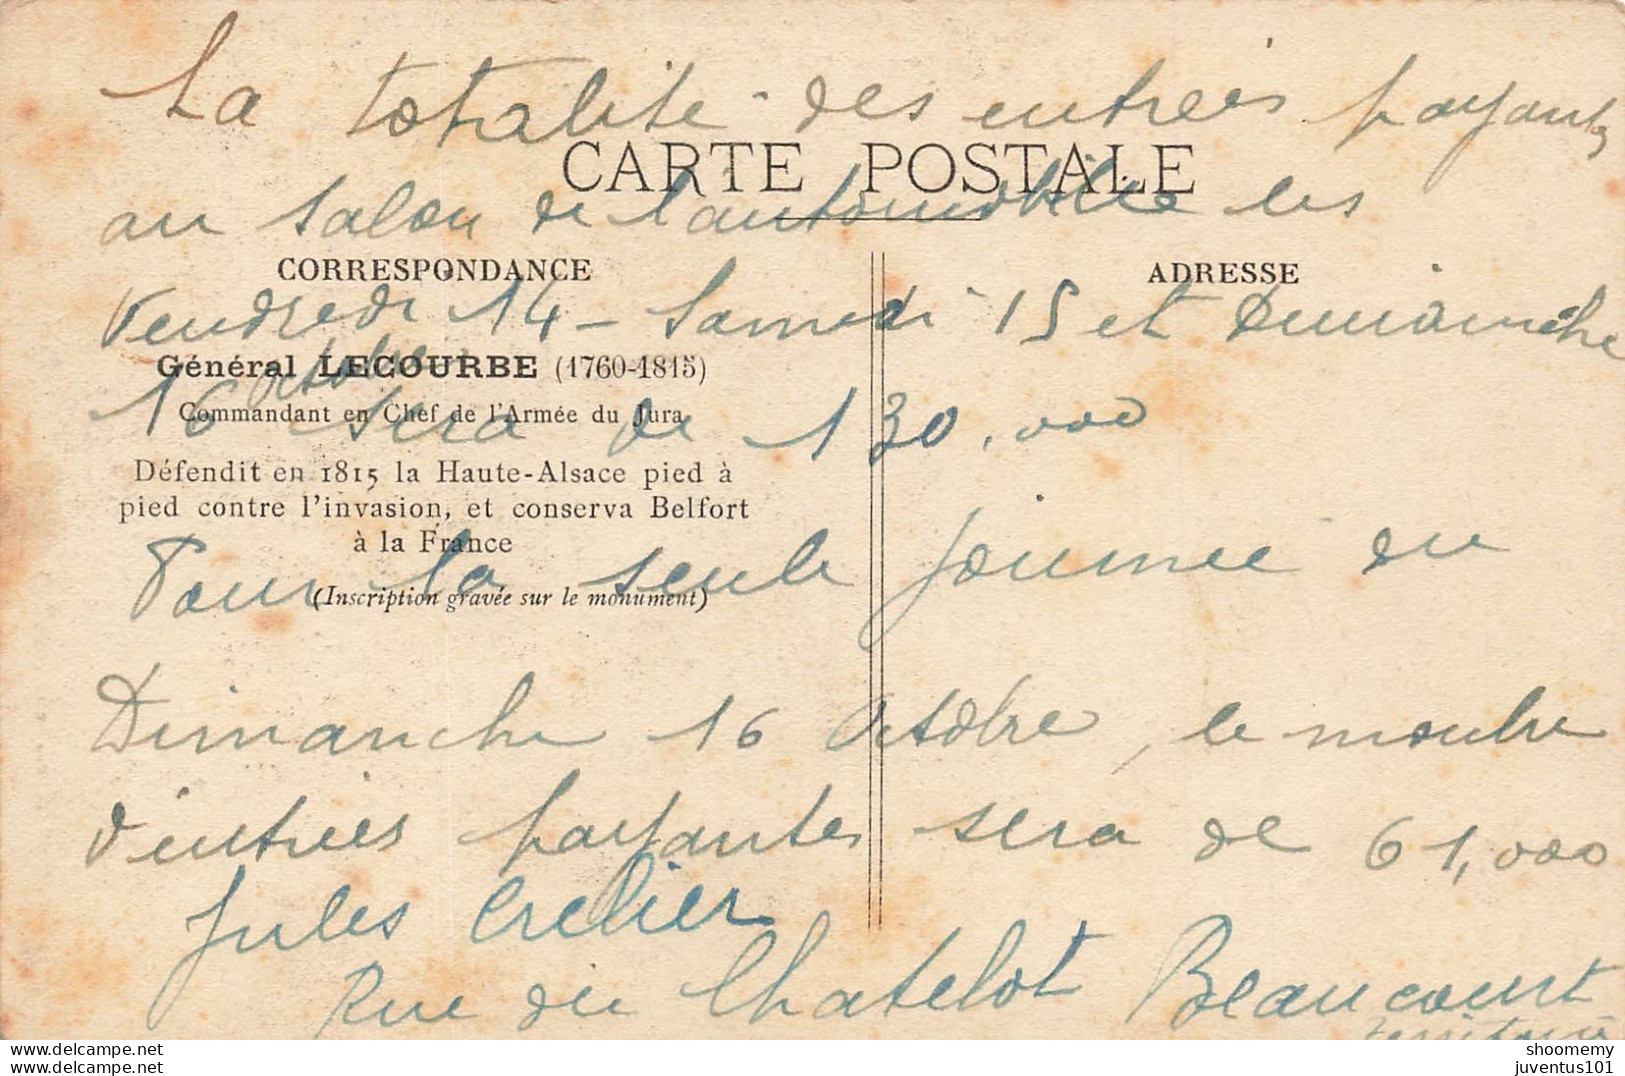 La totalité des entrées payants
CARTE POSTALE
au salon de l'automobile les
CORRESPONDANCE
ADRESSE
Vendredi 14 - Samedi 15 et Dimanche
Général LECOURBE (1760-1815)
octobre
16 sera de 130.000
Commandant en Chef de l'Armée du Jura
Défendit en 1815 la Haute-Alsace pied à
pied contre l'invasion, et conserva Belfort
à la France
Pour la seule journée du
(Inscription gravée sur le monument)
Dimanche 16 octobre, le nombre
d'entrées payantes sera de 61,000
Jules Crelier
Rue du Chatelot Beaucourt
territoire
shoomemy
juventus101